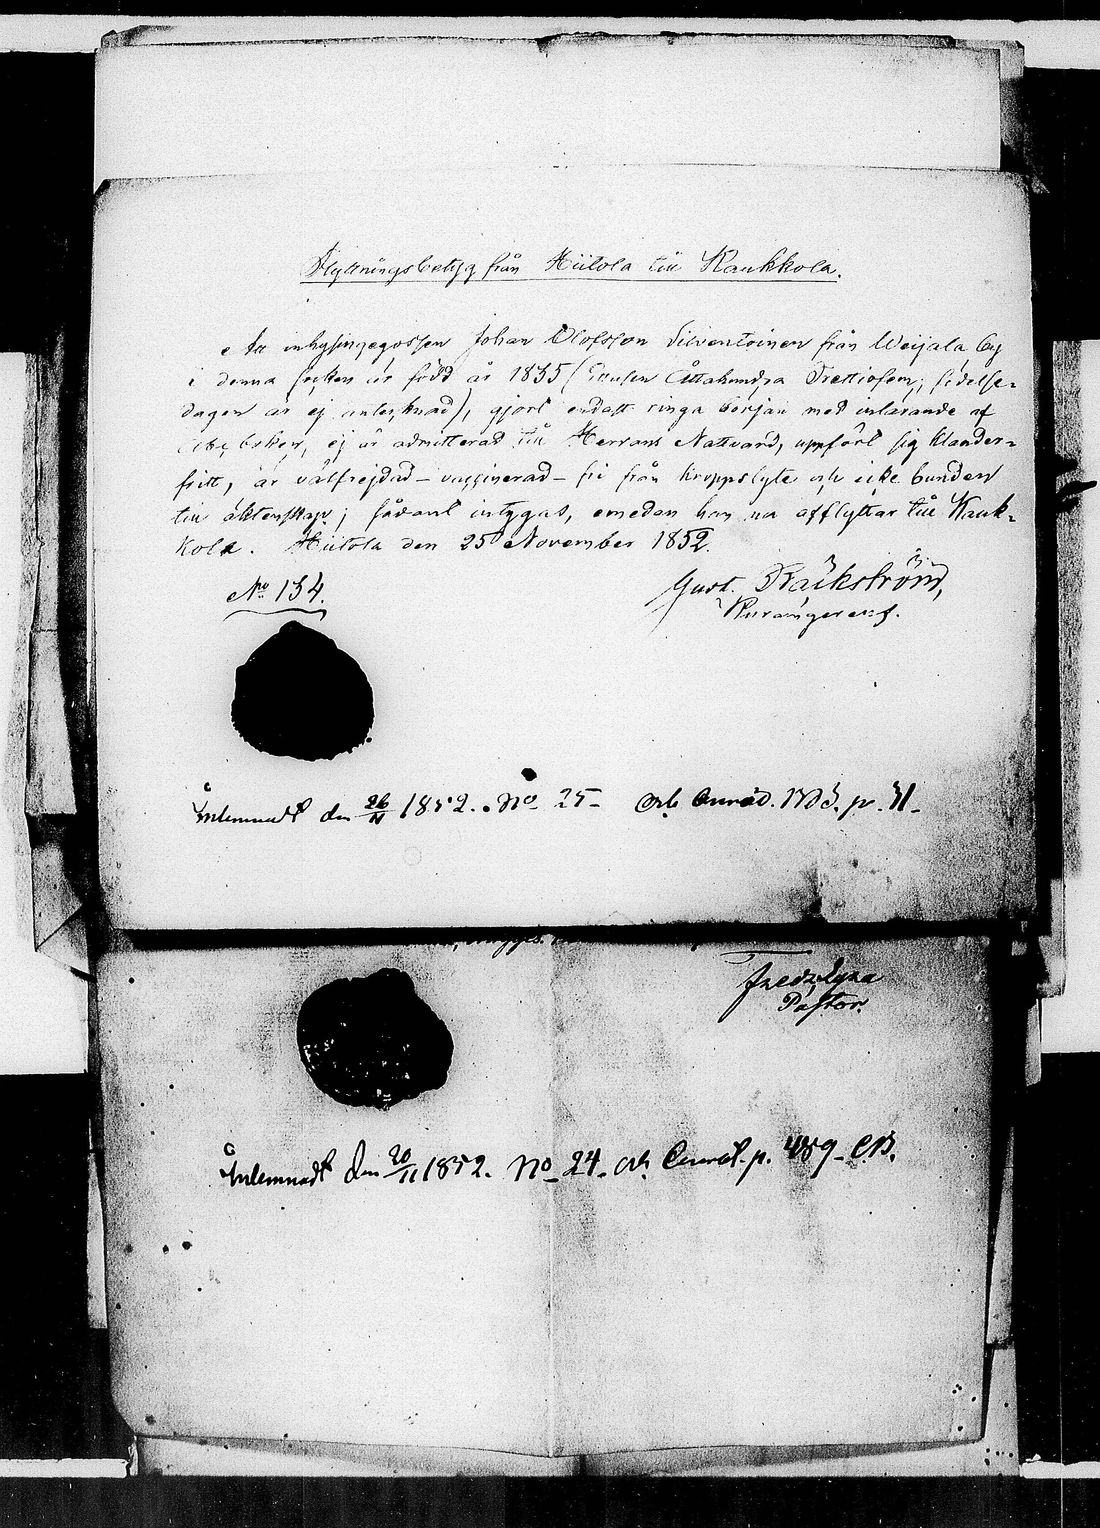 Flyttningsbetyg från Hiitola till Kaukkola.
Att inhysingegossen Johan Olofsson Silventoinen från Weijala by
i denna socken är född år 1835 (Tusen Åttahundra Trettiofem; födelse-
dagen är ej antecknad), gjort endast ringa början med inlärande af
ej är admitterad till Herrans Nattvard, uppfört sig klander-
fritt, är välfrejdad – vaccinerad – fri från kroppslyte och icke bunden
till äktenskap; sådant intygas, emedan han nu afflyttar till Kauk-
kola. Hiitola den 25 November 1852.
No 134.
Gust. Bäckström,
Inlemnadt den 26/11 1852. No 25- p. 51-
Fredr
Pastor.
Inlemnadt den 20/11 1852. No 24- och p. 489-